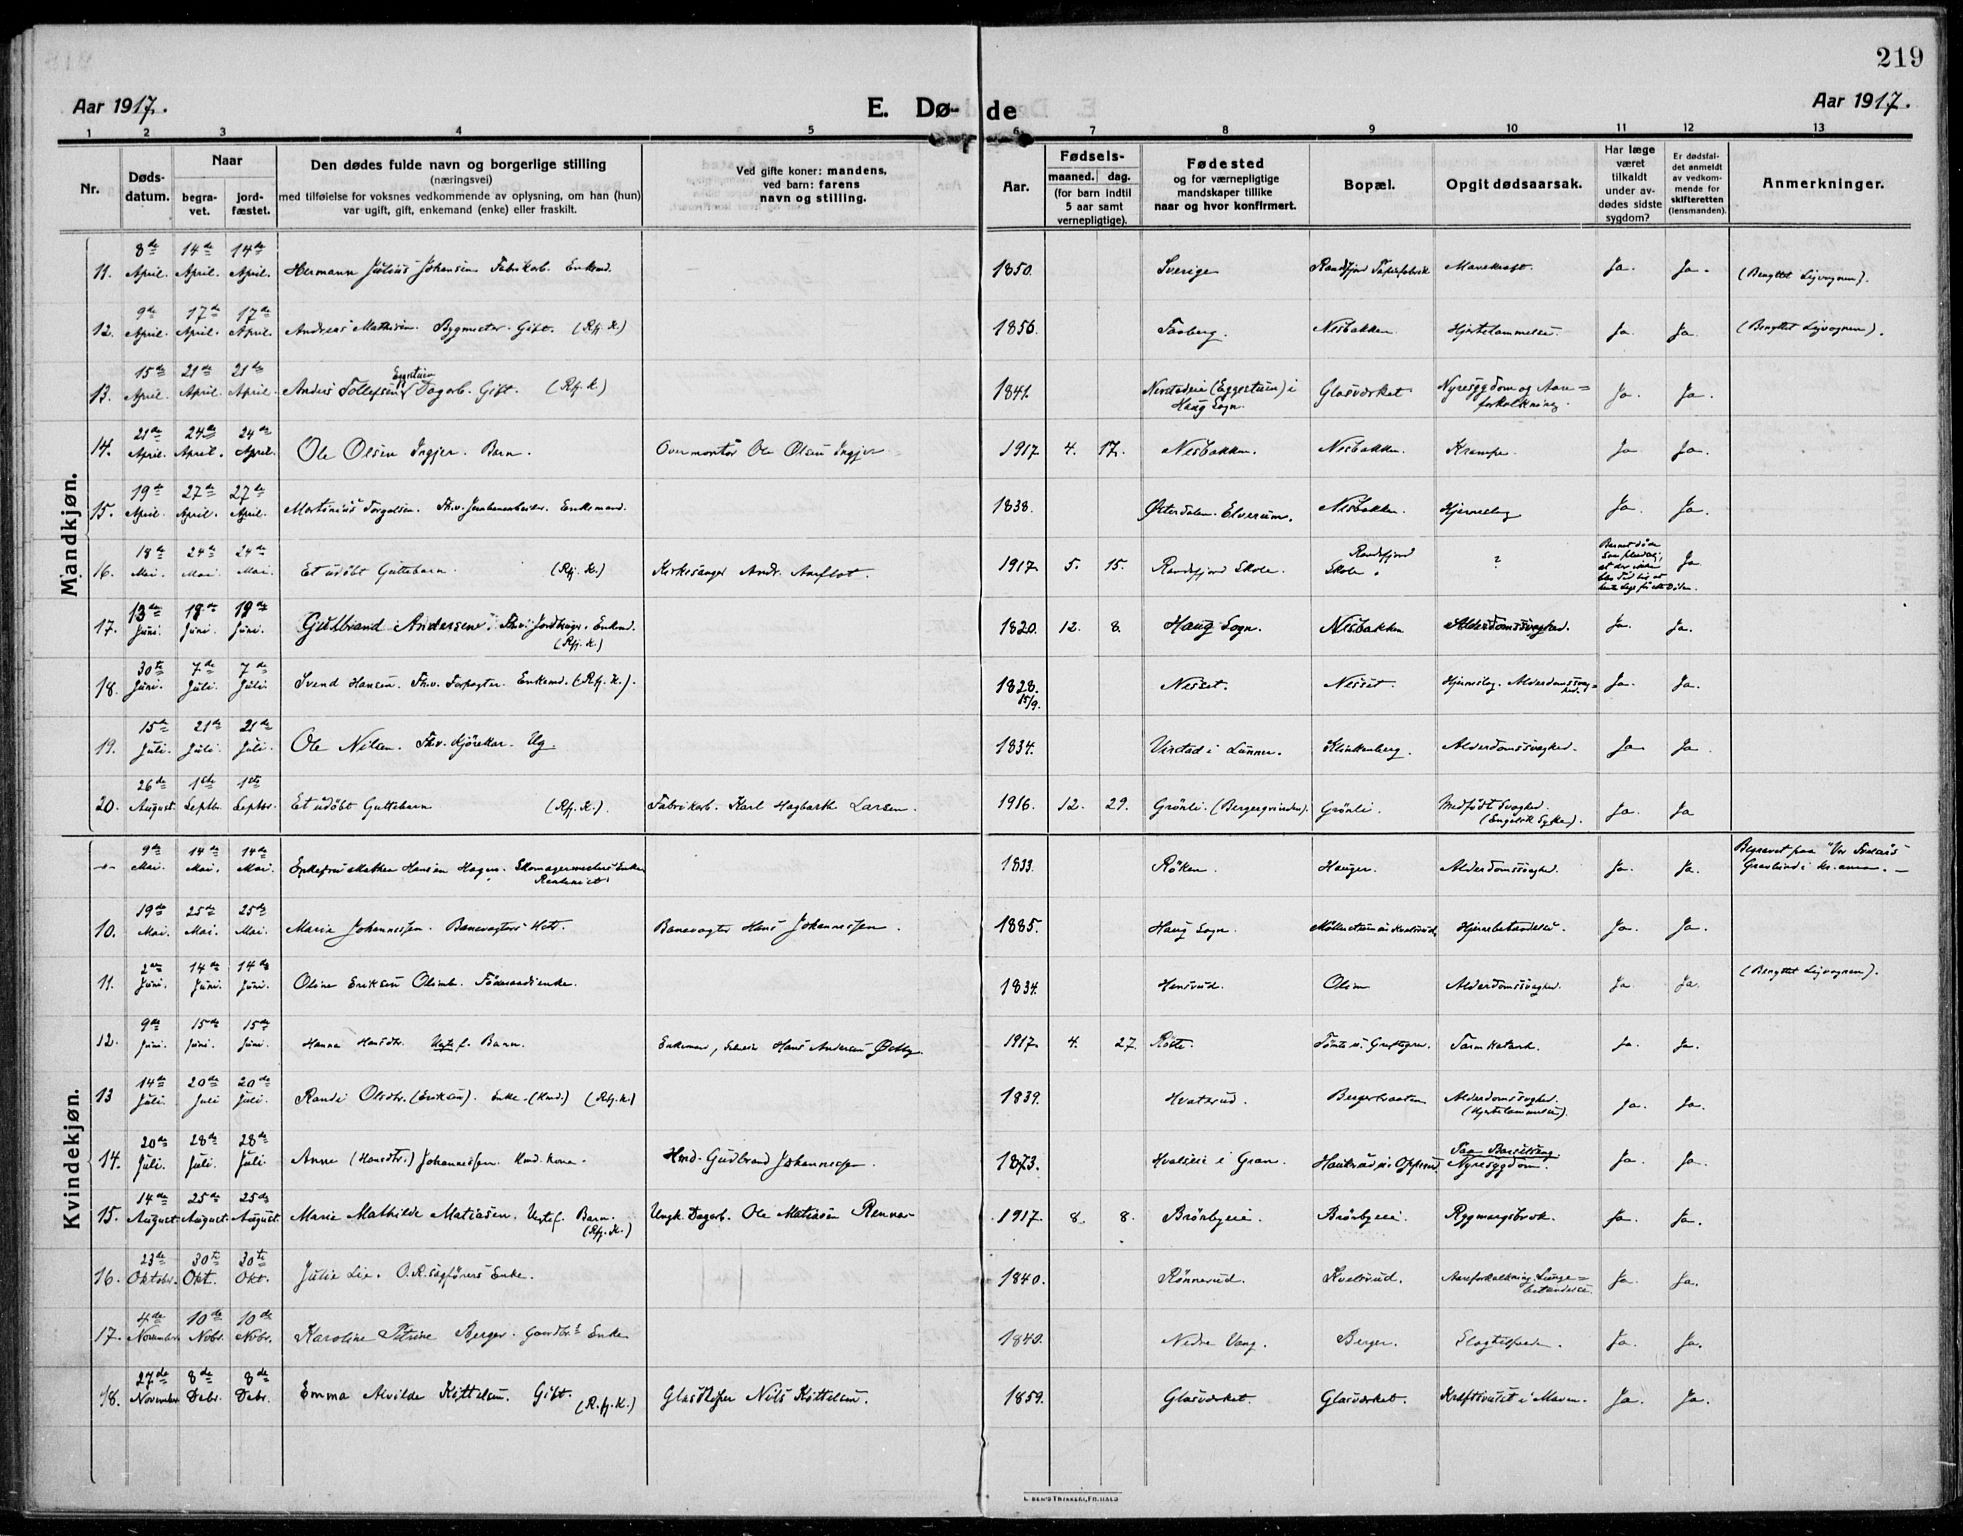 219
Aar 1917. E. Dø- de Aar 1917.
1 2 3 4 5 6 7 8 9 10 11 12 13
Nr.
Døds-
datum.
Naar
begra-
vet.
jord-
fæstet.
Den dødes fulde navn og borgerlige stilling
(næringsvei)
med tilføielse for voksnes vedkommende av oplysning, om han (hun)
var ugift, gift, enkemand (enke) eller fraskilt.
Ved gifte koner: mandens,
ved barn: farens
navn og stilling.
Aar.
Fødsels-
maaned. dag.
(for barn indtil
5 aar samt
vernepligtige).
Fødested
og for værnepligtige
mandskaper tillike
naar og hvor konfirmert.
Bopæl.
Opgit dødsaarsak.
Har læge
været
tilkaldt
under av-
dødes sidste
sygdom?
Er dødsfal-
det anmeldt
av vedkom-
mende for
skifteretten
(lensmanden).
Anmerkninger.
Mandkjøn.
8de 14de 14de
11. April. April. April. Hermann Julius Johansen Fabrikarb. Enkemd. 1850. Sverige Randsfjord Papirfabrik Mavekræft. Ja. Ja. (Benyttet Ligvognen).
9de 17de 17de
12. April. April. April. Andreas Mathisen. Bygmester. Gift. (Rfj. K.) 1856. Faaberg. Nesbakken Hjertelammelse. Ja. Ja. (Benyttet Ligvognen).
15de 21de 21de Eggertuen
13. April. April. April. Anders Tollefsen Dagarb. Gift. (Rfj. K.) 1841. (Eggertuen) i Glasværket Nyresygdom og Aare= Ja. Ja.
Haug Sogn. forkalkning.
21de 24de 24de
14. April. April. April. Ole Olsen Ingjer. Barn. Overmontør Ole Olsen Ingjer 1917 4. 17. Nesbakken. Nesbakken. Krampe. Ja Ja.
19de 27de 27de
15. April. April. April. Martinius Torgalsen. Fhv. Jernbanearbeider. Enkemand. 1838. Østerdalen. Elverum. Nesbakken. Hjerneslag Ja. Ja.
18de 24de 24de Randsfjord
16. Mai. Mai. Mai. Et udøbt Guttebarn. (Rfj. K.) Kirkesanger Andr. Aarflot. 1917 5. 15. Randsfjord Skole. Skole. ? Barnet døde at der ikke Ja.
13de 19de 19de
17. Juni. Juni. Juni. Gulbrand Andersen. Fhv. Jordbruger. Enkemd. 1820. 12. 8. Haug Sogn. Nesbakken Alderdomssvaghed. Ja. Ja.
(Rfj. K.)
30te 7de 7de
18. Juni. Juli. Juli. Svend Hansen. Fhv. Forpagter. Enkemd. (Rfj. K.). 1828. Nesset. Nesset. Hjerneslag. Alderdomssvag= Ja. Ja.
15/9. hed.
15de 21de 21de
19. Juli. Juli. Juli. Ole Nilsen. Fhv. Kjørekar. Ug 1834. Virstad i Lunner. Klinkenberg. Alderdomssvaghed. Ja Ja.
26de 1ste 1ste
20. August. Septbr. Septbr. Et udøbt Guttebarn (Rfj. K.). Fabrikarb. Karl Hagbarth Larsen. 1916. 12. 29. Grønli. (Bergergrinden). Grønli. Medfødt Svaghed. Ja. Ja
(Engelsk Syke).
Kvindekjøn.
9de 14de 14de Begravet paa "Vor Frelsers"
-"- Mai. Mai. Mai. Enkefrue Mathea Hansen Hagen. Skomagermesters Enke. 1833. Røken. Hauger. Alderdomssvaghed. Ja. Ja. Gravlund i Kr.ania. —
Rentenist.
19de 25de 25de
10. Mai. Mai. Mai. Marie Johannessen. Banevogters Hst. Banevogter Hans Johannessen. 1885. Haug Sogn. Ja. Ja.
2den 14de 14de (Benyttet Ligvognen).
11. Juni. Juni. Juni. Oline Eriksen Olimb. Føderaadsenke. 1834. Hensrud. Olim Alderdomssvaghed. Ja Ja.
9de 15de 15de
12. Juni. Juni. Juni. Hanna Hansdtr. Uegtef. Barn. Enkemand, Hans Andersen Østby 1917 4. 27. Tarmkatarh. Ja. Ja.
14de 20de 20de
13 Juli. Juli Juli. Randi Olsdtr. (Eriksen). Enke. (Hmd.) (Rfj. K.) 1839. Hvalsrud. Bergertraaten Alderdomssvaghed Ja. Ja.
(Hjertelammelse).
20de 28de 28de Paa Barselseng
14. Juli. Juli. Juli. Anne (Hansdtr.) Johannessen. Hmd. Kone. Hmd. Gudbrand Johannessen. 1873. Hvalseie i Gran. Nyresygdom. Ja. Ja.
14de 25de 25de
15. August. August. August. Marie Mathilde Matiasen. Uegtef. Barn. Ungk. Dagarb. Ole Matiasen Renna 1917. 8. 8. Brørbyeie. Brørbyeie. Rygmargsbrok. Ja. Ja.
(Rfj. K.)
23de 30te 30te
16. Oktobr. Okt. Okt. Julie Lie. O.R.sagførers Enke. 1840. Rønnerud. Kvelsrud. Aareforkalkning. Lunge= Ja. Ja.
betændelse.
4de 10de 10de
17. November. Nobr. Nobr. Karoline Petrine Berger. Gaardbr.s Enke 1840. Nedre Vang. Berger. Slagtilfælde. Ja. Ja.
27de 8de 8de
18. November Debr. Debr. Emma Alvilde Kittelsen. Gift. (R.fj.K.) Glassliper Nils Kittelsen. 1859. Glasværket. Glasværket. Kræftsvulst i Maven. Ja. Ja.